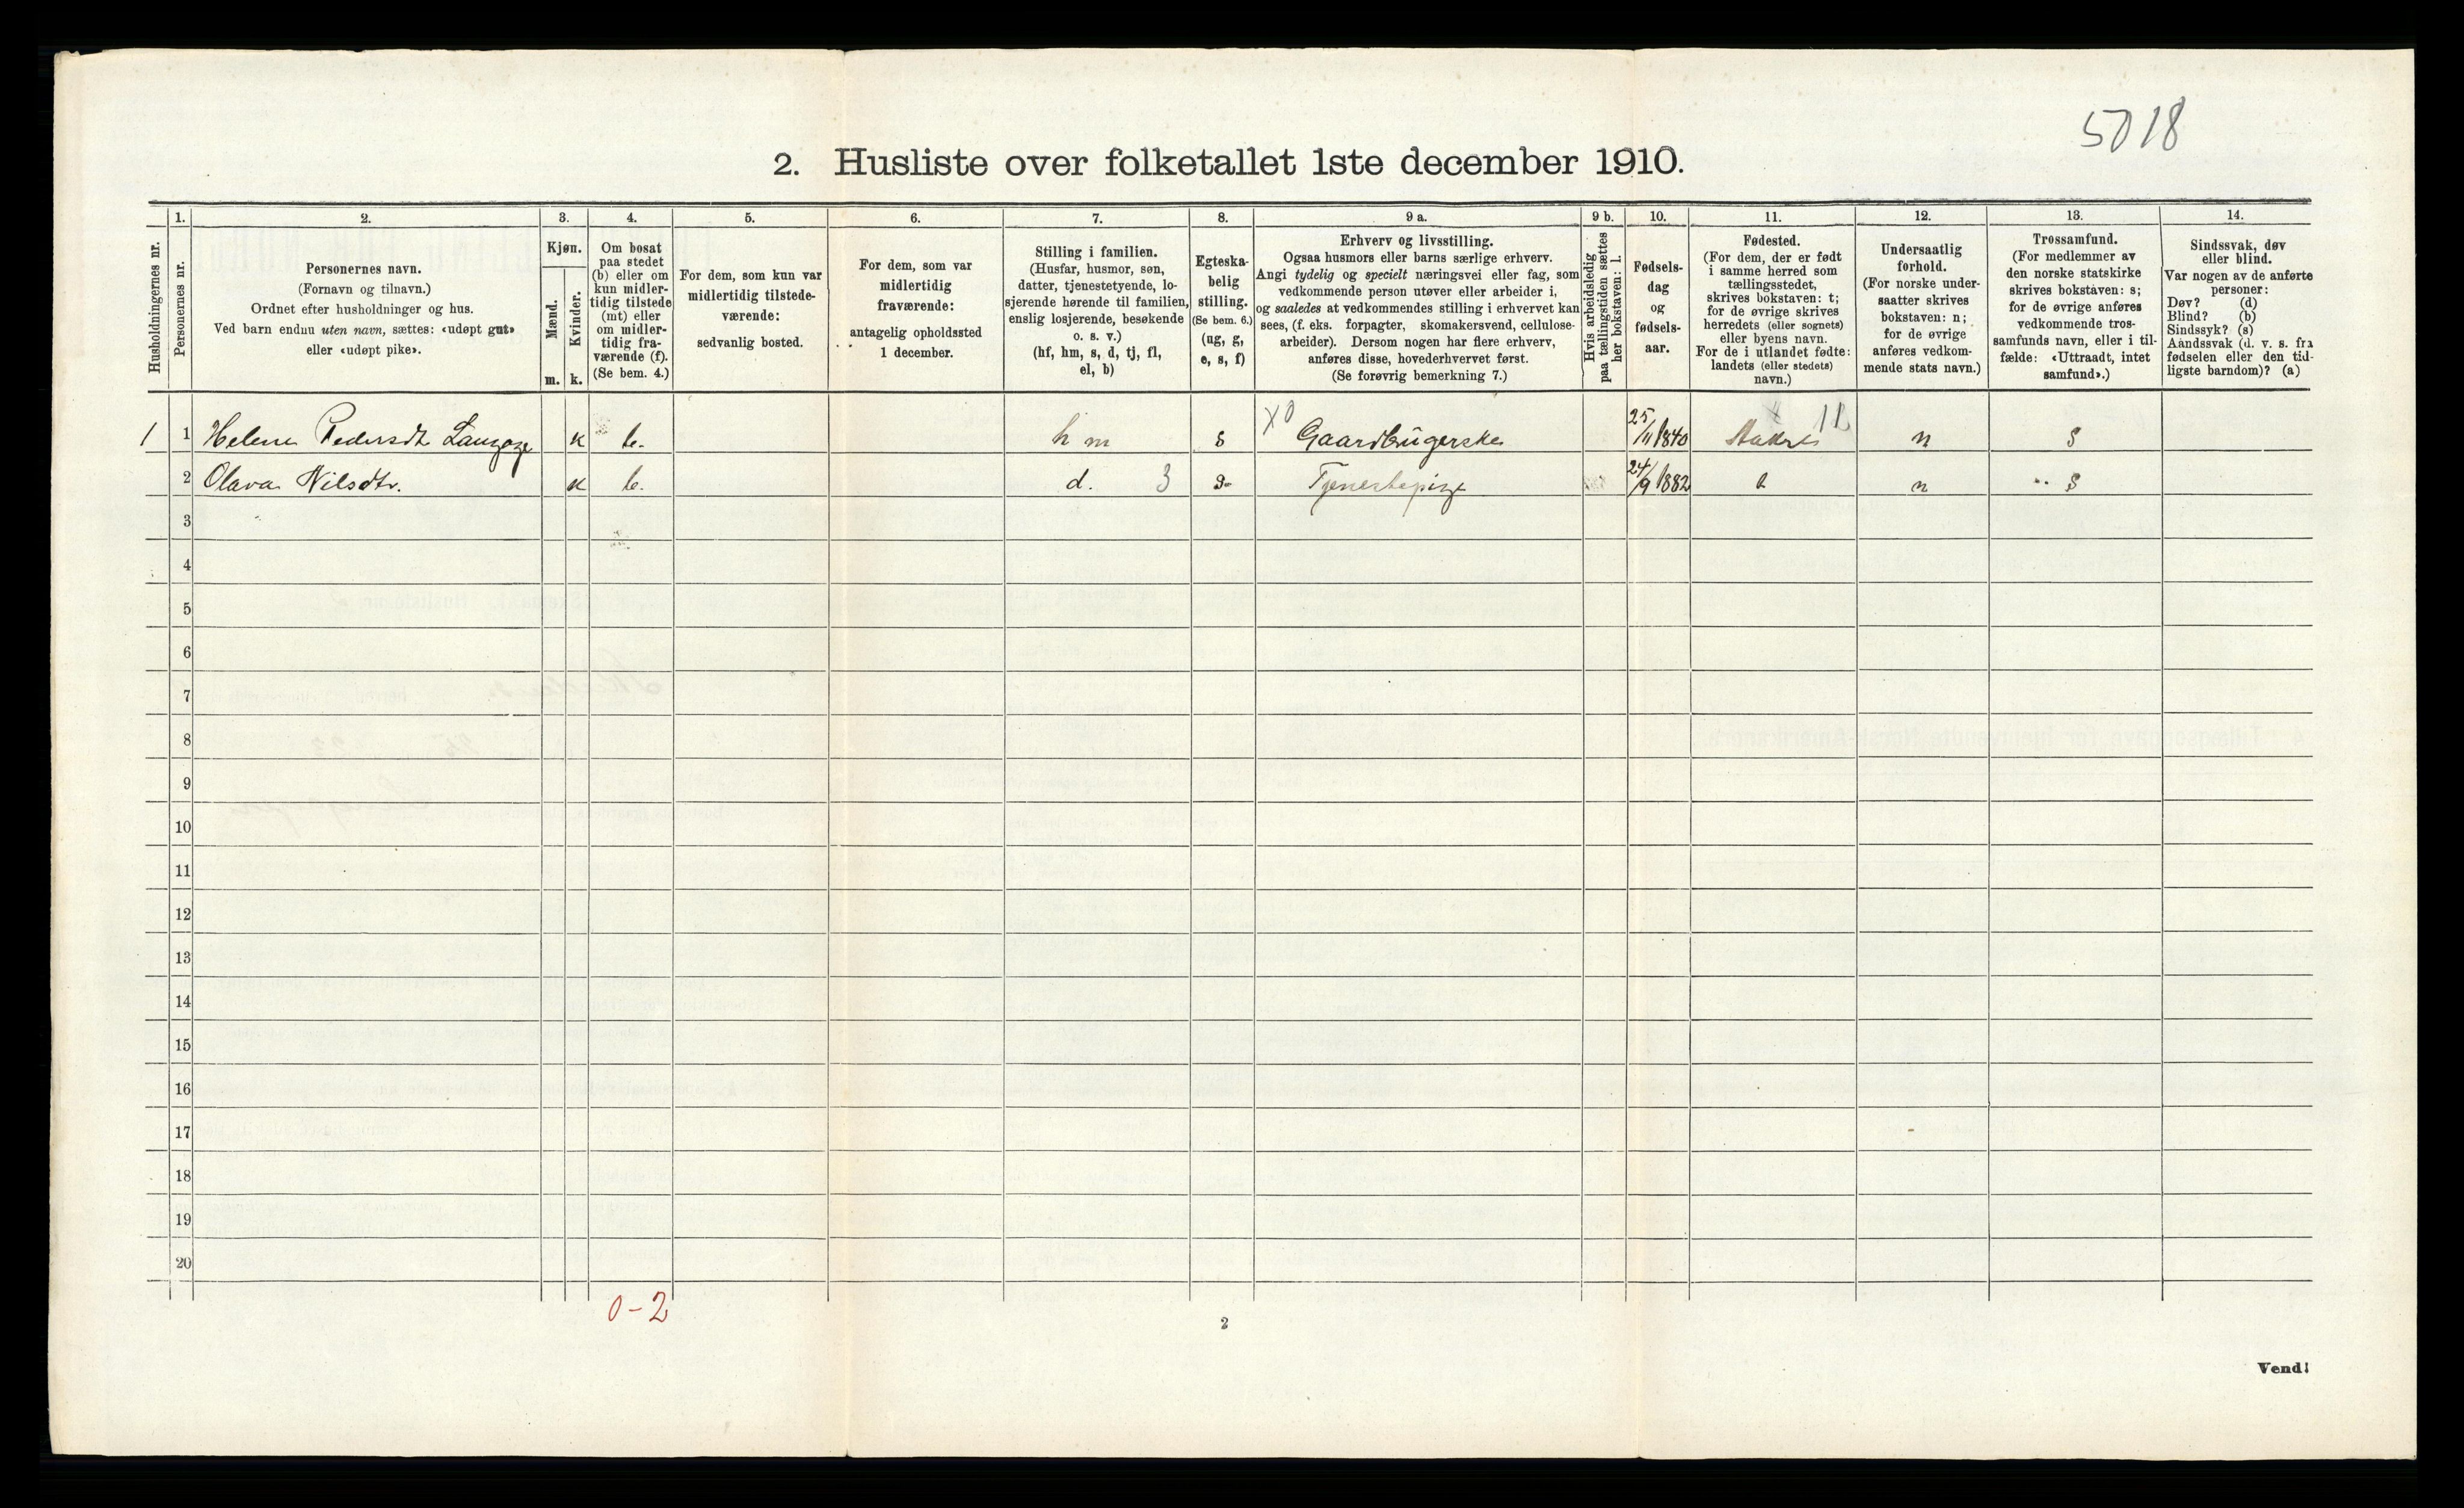 5018
2. Husliste over folketallet 1ste december 1910.
Husholdningernes nr.
1.
Personernes nr.
2.
Personernes navn.
(Fornavn og tilnavn.)
Ordnet efter husholdninger og hus.
Ved barn endnu uten navn, sættes: «udøpt gut»
eller «udøpt pike».
3.
Kjøn.
Mænd.
m.
Kvinder.
k.
4.
Om bosat
paa stedet
(b) eller om
kun midler-
tidig tilstede
(mt) eller
om midler-
tidig fra-
værende (f).
(Se bem. 4.)
5.
For dem, som kun var
midlertidig tilstede-
værende:
sedvanlig bosted.
6.
For dem, som var
midlertidig
fraværende:
antagelig opholdssted
1 december.
7.
Stilling i familien.
(Husfar, husmor, søn,
datter, tjenestetyende, lo-
sjerende hørende til familien,
enslig losjerende, besøkende
o. s. v.)
(hf, hm, s, d, tj, fl,
el, b)
8.
Egteska-
belig
stilling.
(Se bem. 6.)
(ug, g,
e, s, f)
9 a.
Erhverv og livsstilling.
Ogsaa husmors eller barns særlige erhverv.
Angi tydelig og specielt næringsvei eller fag, som
vedkommende person utøver eller arbeider i,
og saaledes at vedkommendes stilling i erhvervet kan
sees, (f. eks. forpagter, skomakersvend, cellulose-
arbeider). Dersom nogen har flere erhverv,
anføres disse, hovederhvervet først.
(Se forøvrig bemerkning 7.)
9 b.
Hvis arbeidsledig
paa tællingstiden sættes
her bokstaven: l.
10.
Fødsels-
dag
og
fødsels-
aar.
11.
Fødested.
(For dem, der er født
i samme herred som
tællingsstedet,
skrives bokstaven: t;
for de øvrige skrives
herredets (eller sognets)
eller byens navn.
For de i utlandet fødte:
landets (eller stedets)
navn.)
12.
Undersaatlig
forhold.
(For norske under-
saatter skrives
bokstaven: n;
for de øvrige
anføres vedkom-
mende stats navn.)
13.
Trossamfund.
(For medlemmer av
den norske statskirke
skrives bokstaven: s;
for de øvrige anføres
vedkommende tros-
samfunds navn, eller i til-
fælde: «Uttraadt, intet
samfund».)
14.
Sindssvak, døv
eller blind.
Var nogen av de anførte
personer:
Døv? (d)
Blind? (b)
Sindssyk? (s)
Aandssvak (d. v. s. fra
fødselen eller den tid-
ligste barndom)? (a)
1 1 Helene Pedersdt k b. h m X0 Gaardbrugerske 25/11 1840 n s
2 Olava Nilsdtr. k b. d. 3 Tjenestepige 24/9 1882 n s
3
4
5
6
7
8
9
10
11
12
13
14
15
16
17
18
19
20
0-2
2
Vend!